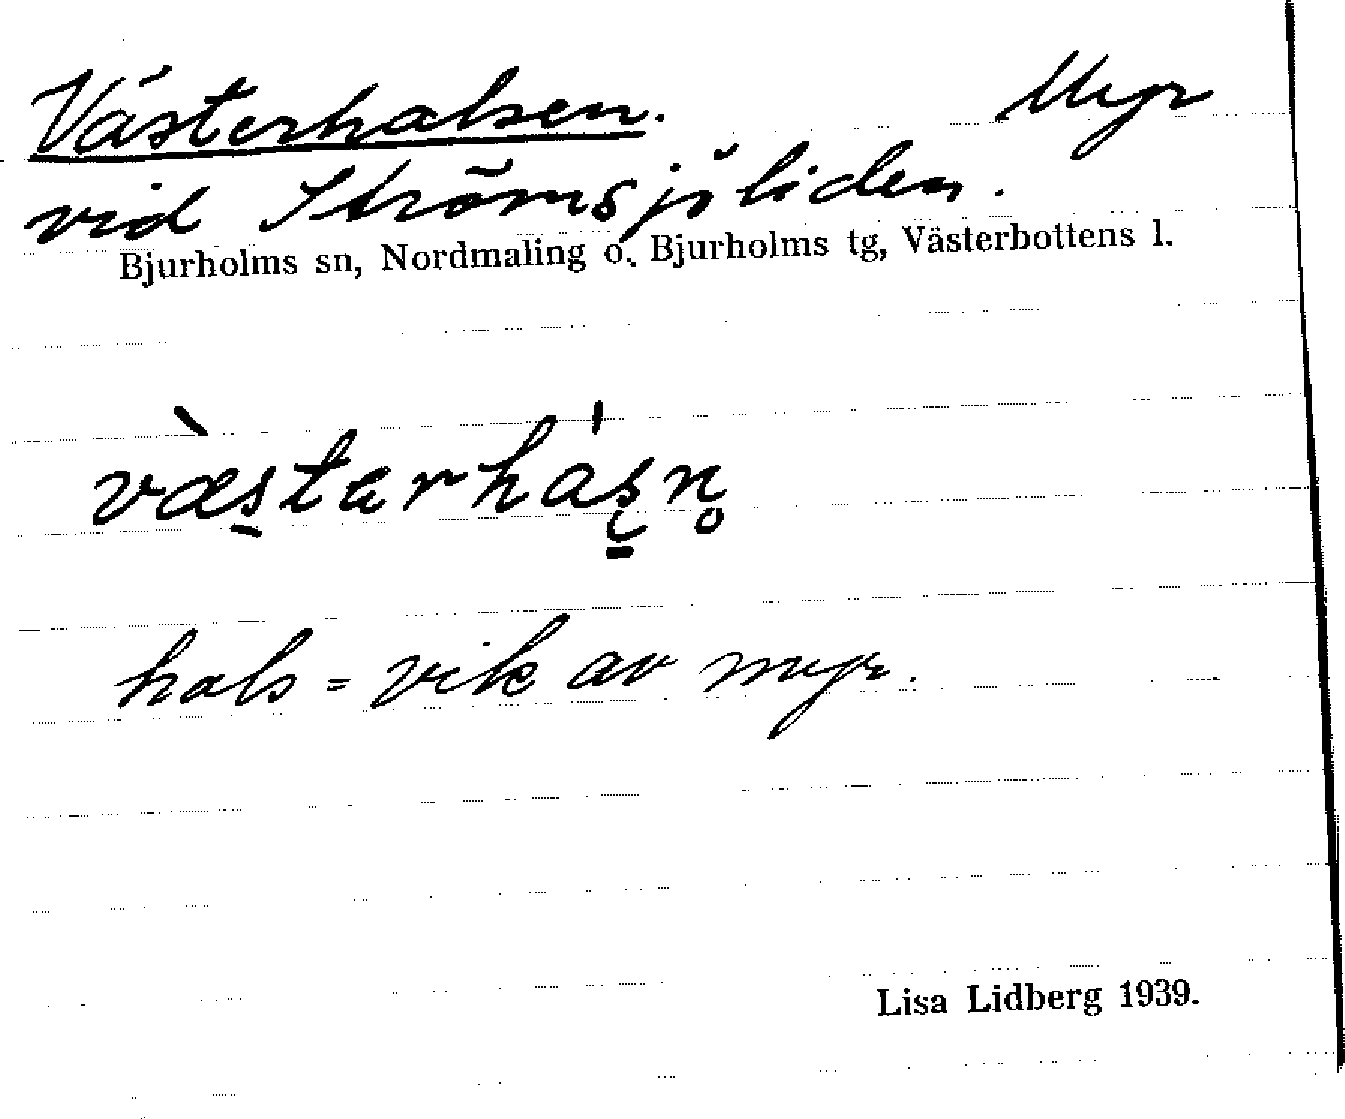 Västerhalsen. Myr
vid Strömsjöliden.
Bjurholms sn, Nordmaling o. Bjurholms tg, Västerbottens l.
væ̀s̠tarhás̨̠n̥
hals = vik av myr.
Lisa Lidberg 1939.